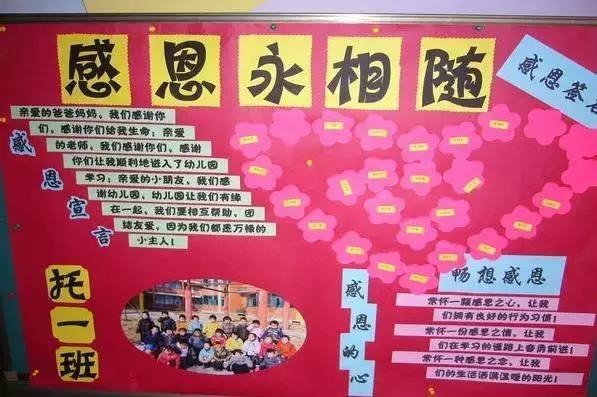 感恩永相随
感恩签名
感恩宣言
亲爱的爸爸妈妈，我们感谢你
们，感谢你们给我生命；亲爱
的老师，我们感谢你们，感谢
你们让我顺利地进入了幼儿园
学习；亲爱的小朋友，我们感
谢幼儿园，幼儿园让我们有缘
在一起，我们要相互帮助，团
结友爱，因为我们都是万禄的
小主人！
托一班
感恩的心
畅想感恩
常怀一颗感恩之心，让我
们拥有良好的行为习惯！
常怀一份感恩之情，让我
们在学习的道路上奋勇前进！
常怀一种感恩之念，让我
们的生活洒满温暖的阳光！